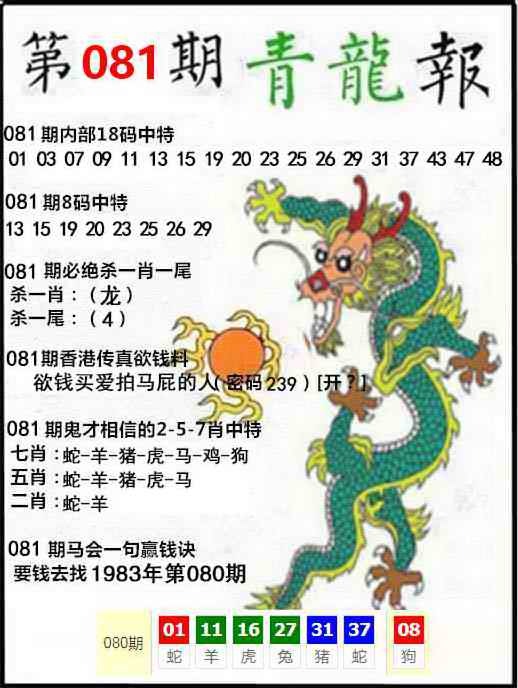 第081期 青龍報
081期内部18码中特
01 03 07 09 11 13 15 19 20 23 25 26 29 31 37 43 47 48
081期8码中特
13 15 19 20 23 25 26 29
081 期必绝杀一肖一尾
杀一肖：（龙）
杀一尾：（4）
081期香港传真欲钱料
欲钱买爱拍马屁的人（密码239）[开？]
081期鬼才相信的2-5-7肖中特
七肖：蛇-羊-猪-虎-马-鸡-狗
五肖：蛇-羊-猪-虎-马
二肖：蛇-羊
081 期马会一句赢钱诀
要钱去找1983年第080期
080期 01 11 16 27 31 37 08
蛇 羊 虎 兔 猪 蛇 狗